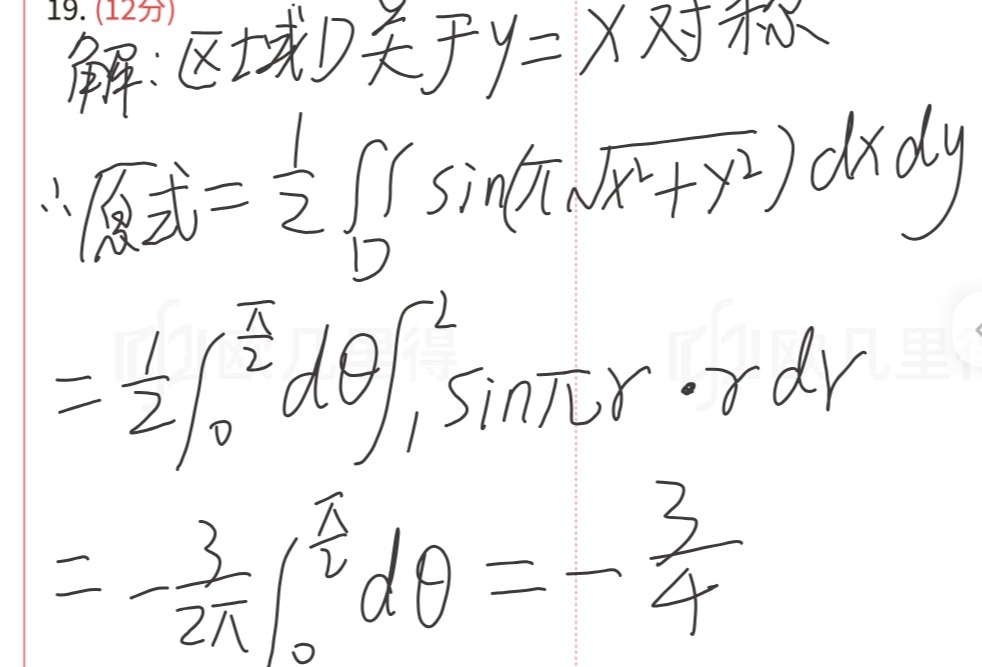 19. (12分)
解：区域D关于y=x对称
∴原式=1/2∬_D sin(π√(x²+y²))dxdy
=1/2∫_0^(π/2) dθ∫_1^2 sinπr·rdr
=-3/(2π)∫_0^(π/2) dθ=-3/4
欧几里得 欧几里